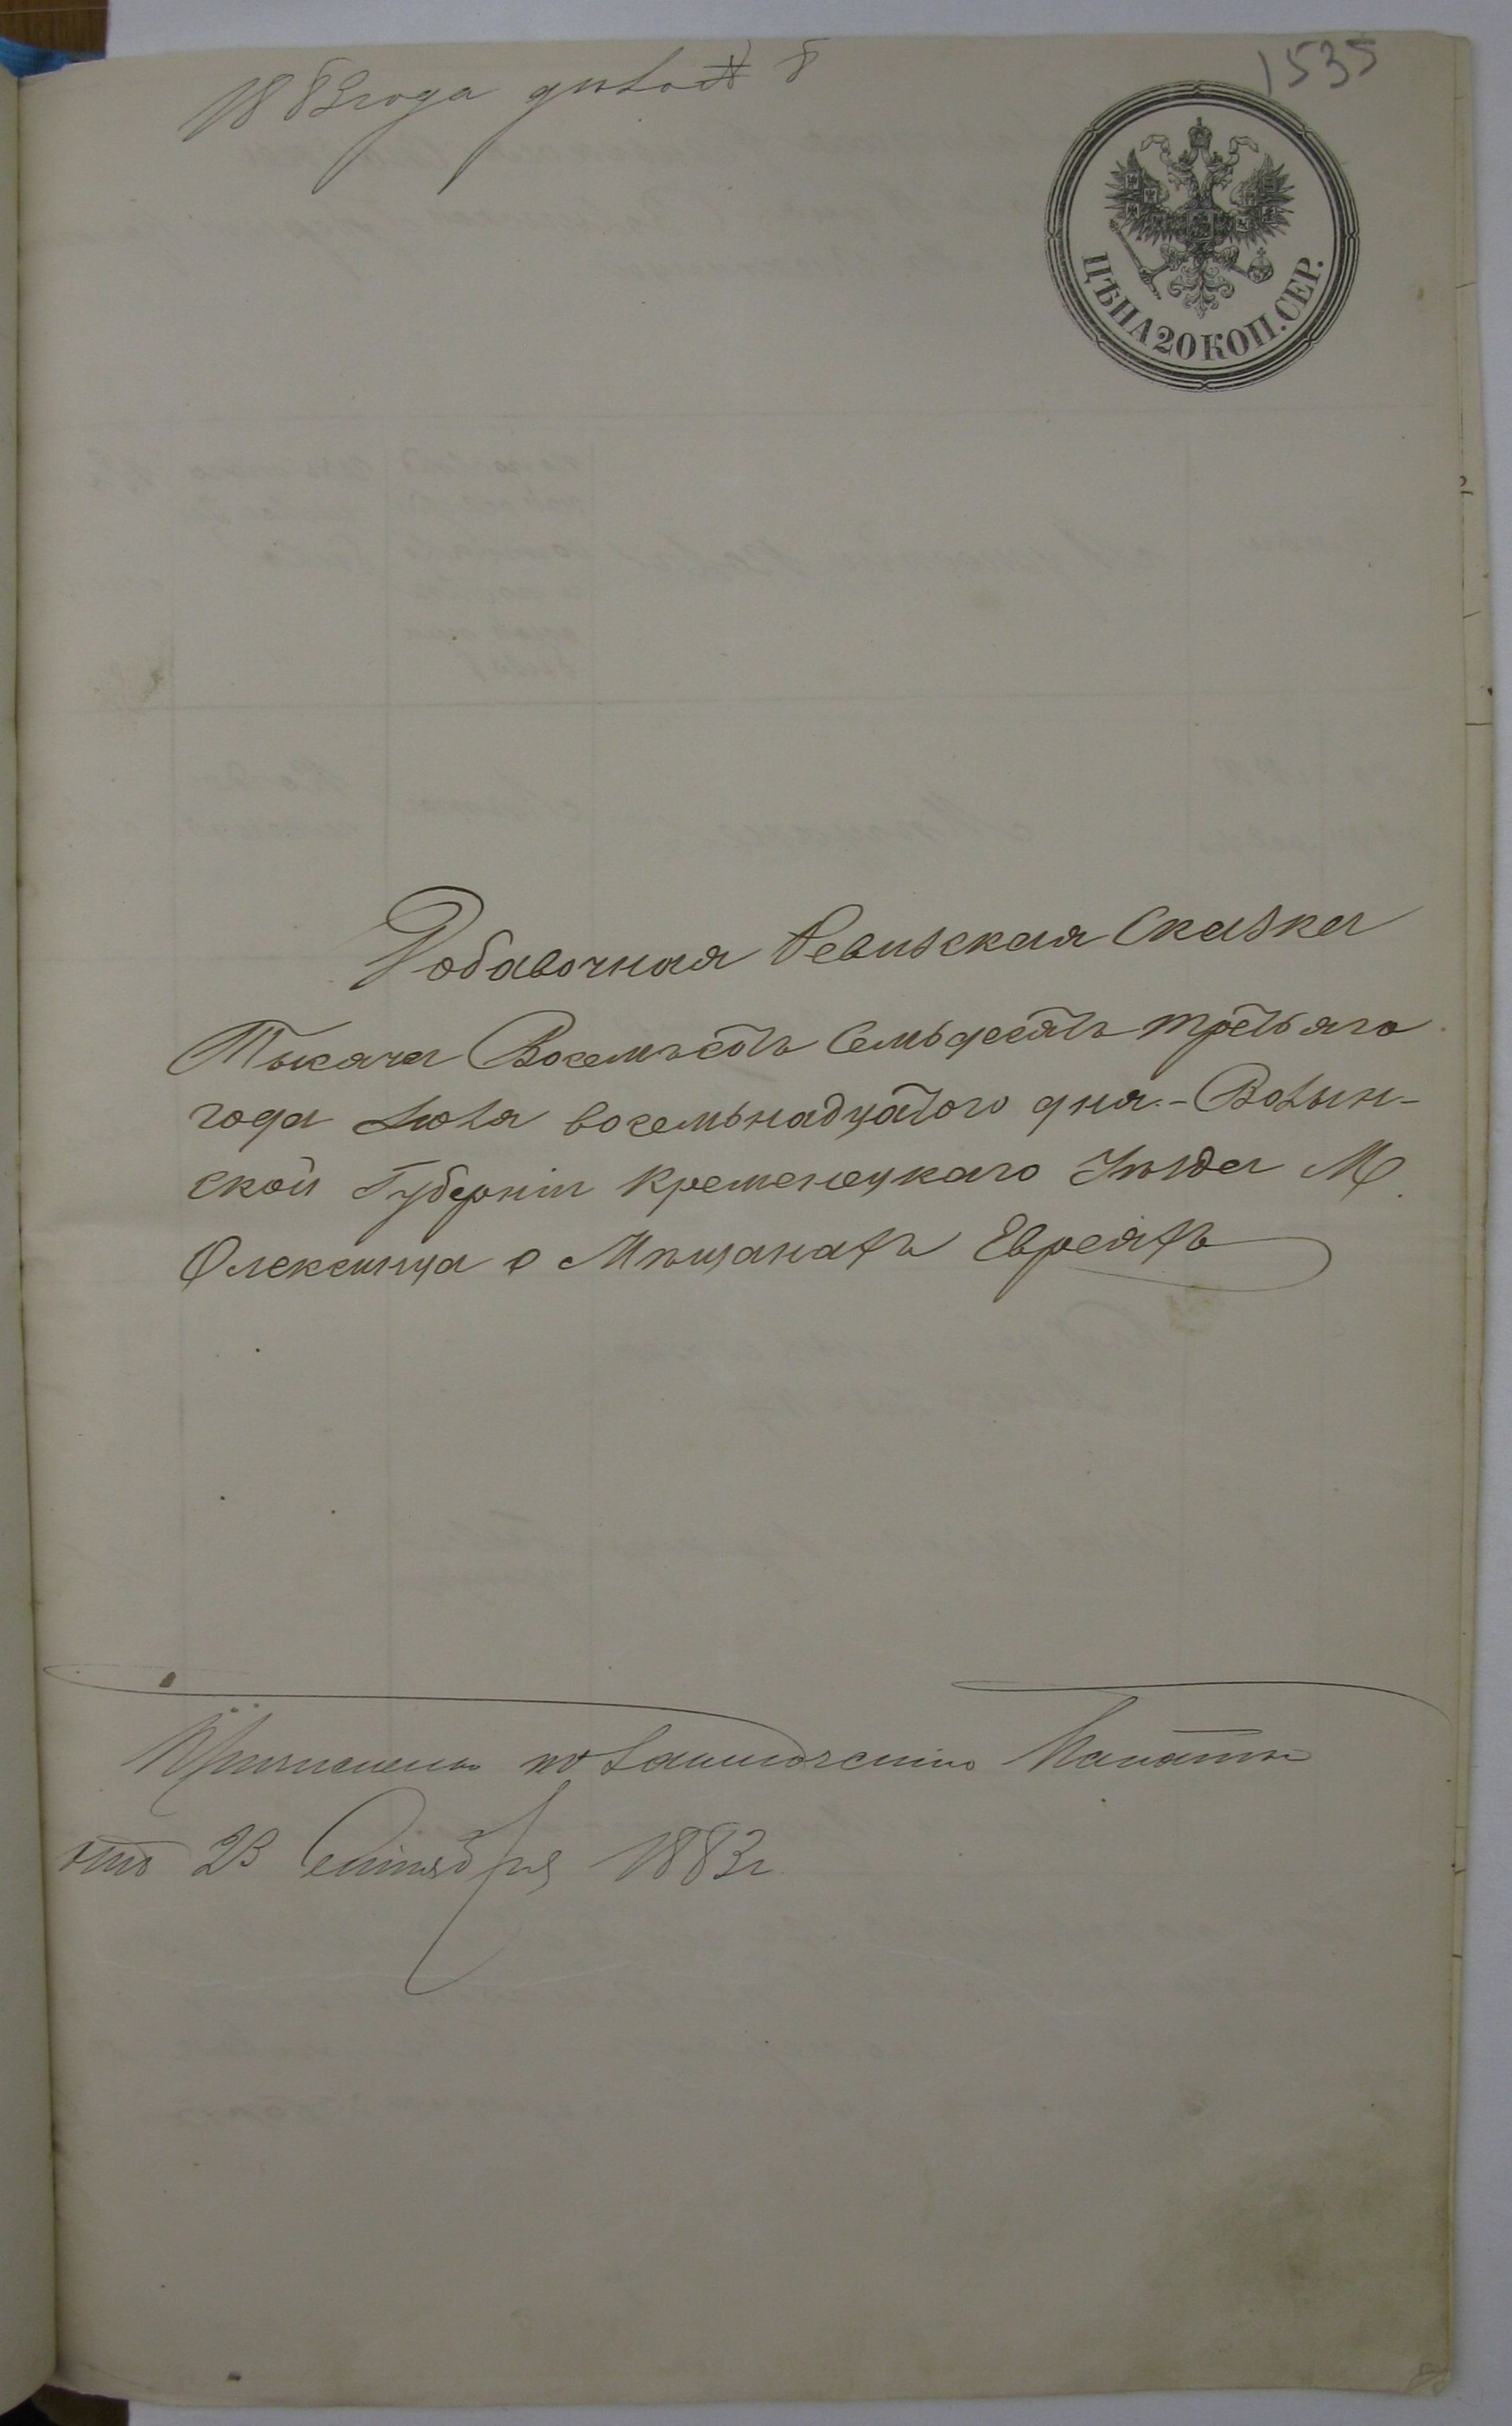 1535
1883 года дѣло № 8
ЦѢНА 20 КОП. СЕР.
Добавочная Ревизская Сказка
Тысяча Восемьсотъ Семьдесятъ третьяго
года Іюля восемьнадцатого дня - Волын-
ской Губерніи Кременецкаго Уѣзда М.
Олексинца о Мѣщанахъ Евреяхъ
Причислены по Палаты
отъ 23 Сентября 1883 г.